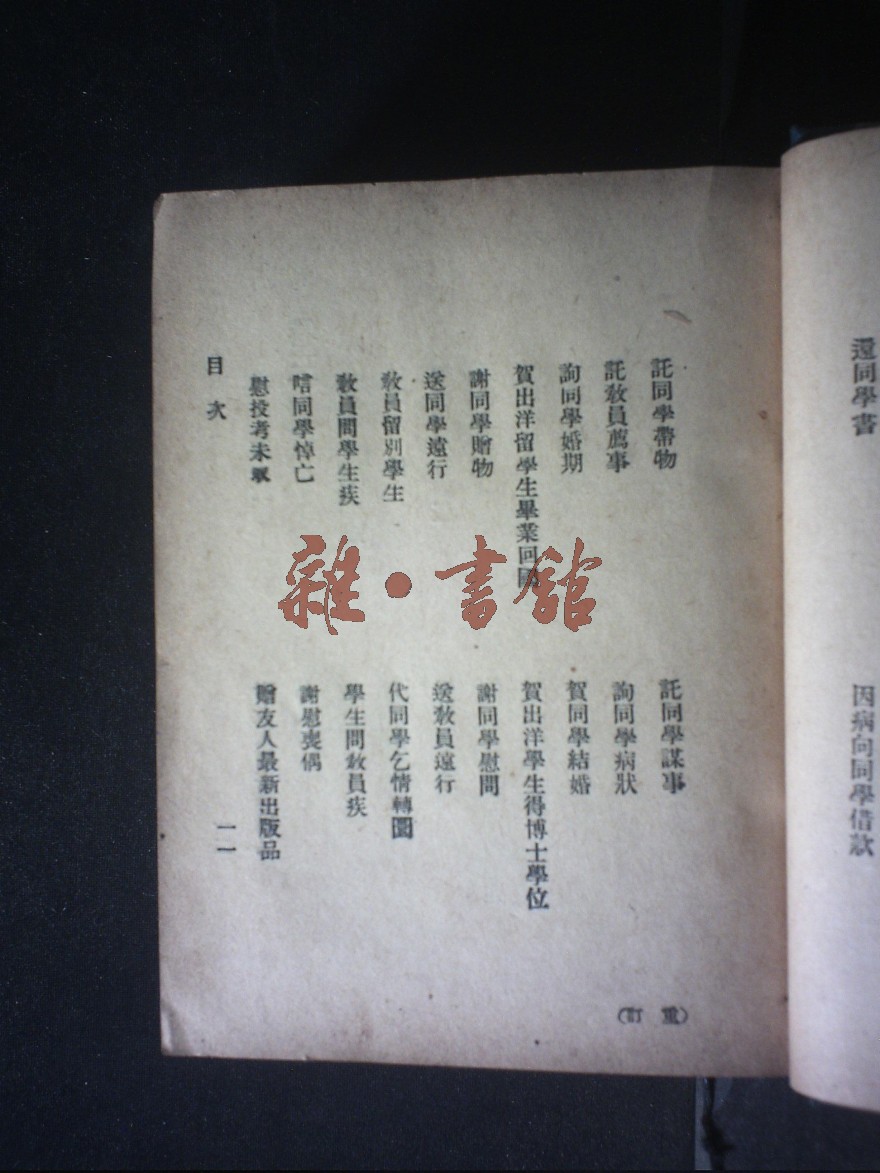 還同學書
因病向同學借款
託同學帶物
託同學謀事
託教員薦事
詢同學病狀
詢同學婚期
賀同學結婚
賀出洋留學生畢業回國
賀出洋學生得博士學位
謝同學贈物
謝同學慰問
送同學遠行
送教員遠行
教員留別學生
代同學乞情轉圜
教員問學生疾
學生問教員疾
唁同學悼亡
謝慰喪偶
慰投考未取
贈友人最新出版品
目次
一一
(重訂)
雜·書館